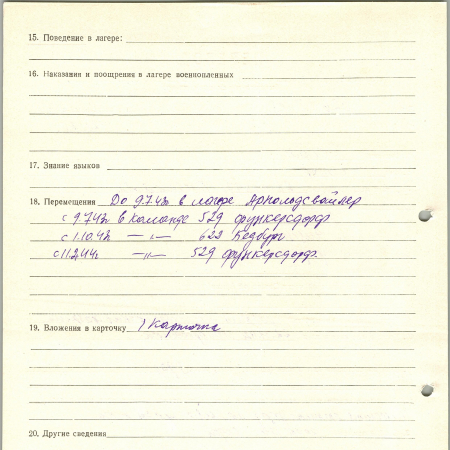 15. Поведение в лагере:
16. Наказания и поощрения в лагере военнопленных
17. Знание языков
18. Перемещения До 9.7.43г в лагере Арнольдсвайлер
с 9.7.43г в команде 529 Функерсдорф
с 1.10.43 —„— 622 Бедбург
с 11.2.44г —„— 529 Функерсдорф.
19. Вложения в карточку 1 карточка
20. Другие сведения